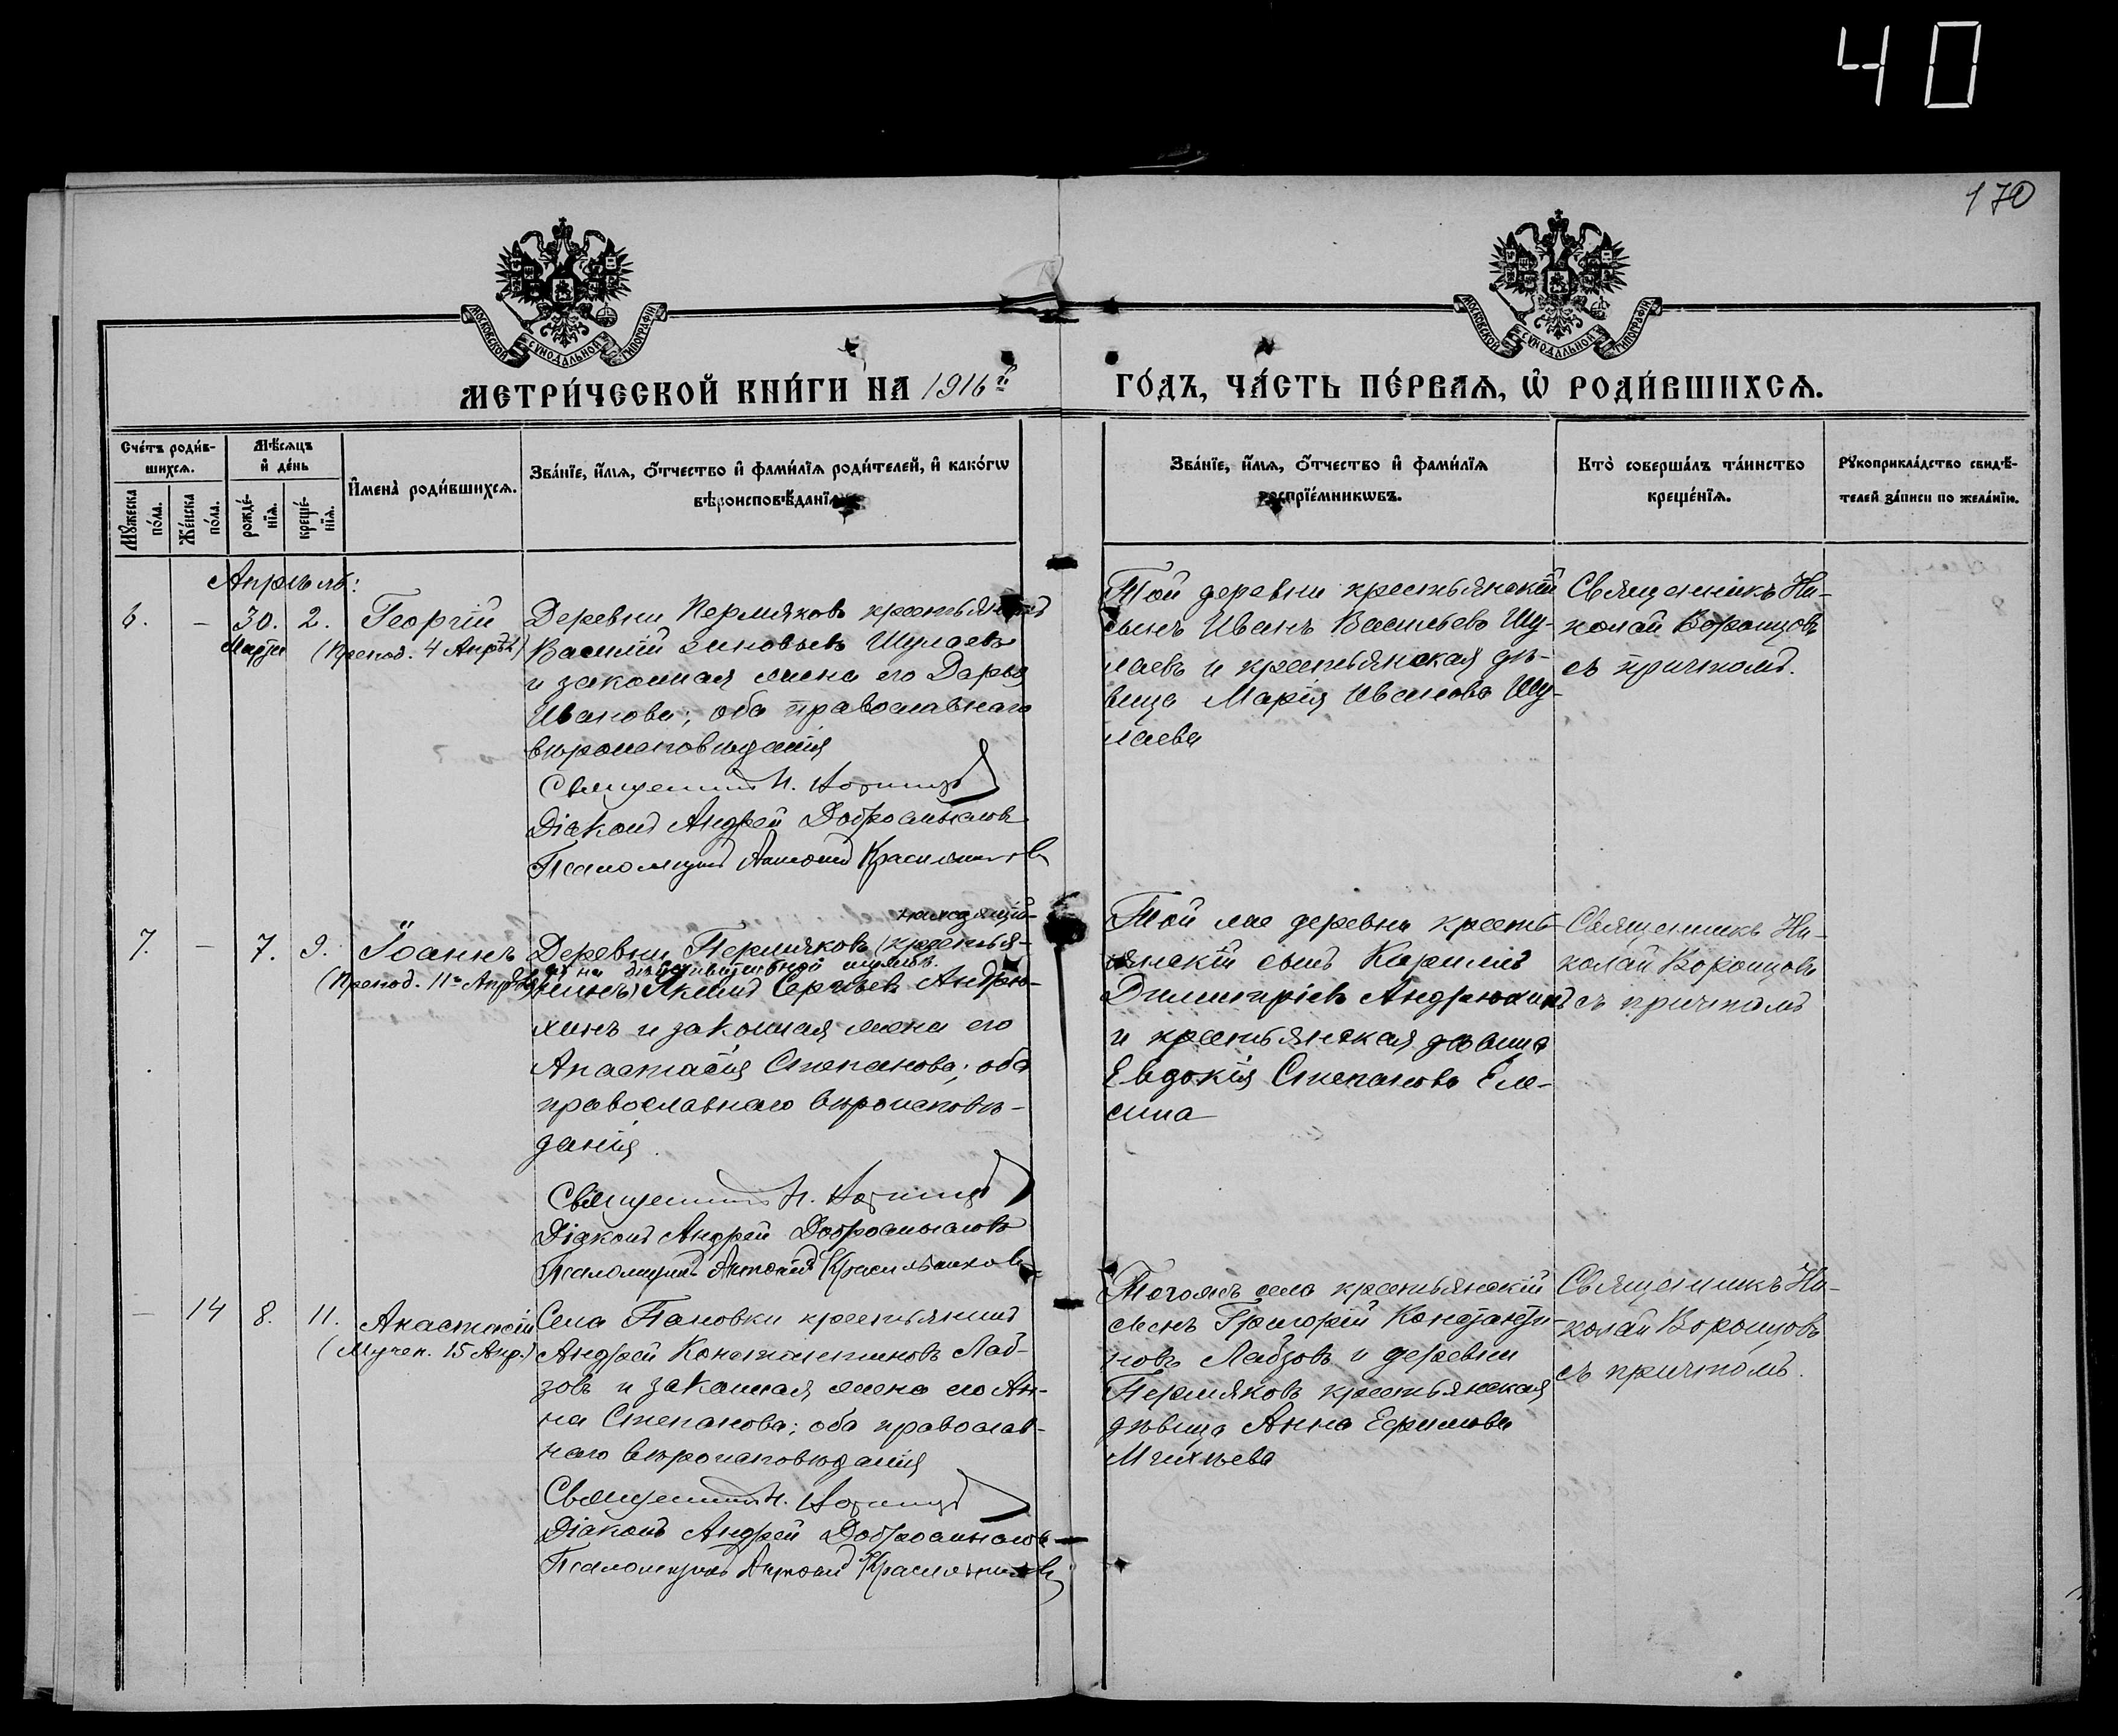 40
170
МОСКОВСКОЙ СѴНОДАЛЬНОЙ ТИПОГРАФІИ
МОСКОВСКОЙ СѴНОДАЛЬНОЙ ТИПОГРАФІИ
МЕТРИ́ЧЕСКОЙ КНИ́ГИ НА 1916й
ГО́ДЪ, ЧА́СТЬ ПЕ́РВАѦ, Ѡ҆ РОДИ́ВШИХСѦ.
Сче́тъ роди́в-
шихсѧ.
Мꙋ́жеска
по́ла.
Же́нска
по́ла.
Мѣ́сѧцъ
и҆ де́нь
рожде́-
нїѧ.
креще́-
нїѧ.
И҆мена̀ роди́вшихсѧ.
Зва́нїе, и҆́мѧ, ѻ҆́тчество и҆ фами́лїѧ роди́телей, и҆ како́гѡ
вѣроисповѣ́данїѧ.
Зва́нїе, и҆́мѧ, ѻ҆́тчество и҆ фами́лїѧ
воспрїе́мникѡвъ.
Кто̀ соверша́лъ та́инство
креще́нїѧ.
Рꙋкоприкла́дство свидѣ́-
телей за́писи по жела́нїю.
Апрѣль:
6.
–
30.
Марта
2.
Георгій
(Препод. 4 Апрѣл)
Деревни Пермяковъ крестьянинъ
Василій Зиновьевъ Шулаевъ
и законная жена его Дарья
Иванова; оба православнаго
вѣроисповѣданія
Священникъ Н. Воронцовъ
Діаконъ Андрей Добросмысловъ
Псаломщикъ Антоній Красильниковъ
Той деревни крестьянскій
сынъ Иванъ Васильевъ Шу-
лаевъ и крестьянская дѣ-
вица Марія Иванова Шу-
лаева
Священникъ Ни-
колай Воронцовъ
съ причтомъ.
7.
–
7.
9.
Іоаннъ
(Препод. 11го Апрѣля)
находящій-
Деревни Пермяковъ (крестья-
ся на дѣйствительной службѣ.
нинъ) Акимъ Сергѣевъ Андрю-
хинъ и законная жена его
Анастасія Степанова; оба
православнаго вѣроисповѣ-
данія.
Священникъ Н. Воронцовъ
Діаконъ Андрей Добросмысловъ
Псаломщикъ Антоній Красильниковъ
Той же деревни кресть-
янскій сынъ Кириллъ
Димитріевъ Андрюхинъ
и крестьянская дѣвица
Евдокія Степанова Еле-
сина
Священникъ Ни-
колай Воронцовъ
съ причтомъ
–
14
8.
11.
Анастасія
(Мучен. 15 Апр.)
Села Пановки крестьянинъ
Андрей Константиновъ Лаб-
зовъ и законная жена его Ан-
на Степанова; оба православ-
наго вѣроисповѣданія
Священникъ Н. Воронцовъ
Діаконъ Андрей Добросмысловъ
Псаломщикъ Антоній Красильниковъ
Тогожъ села крестьянскій
сынъ Григорій Константи-
новъ Лабзовъ и деревни
Пермяковъ крестьянская
дѣвица Анна Ефимова
Михѣева
Священникъ Ни-
колай Воронцовъ
съ причтомъ.